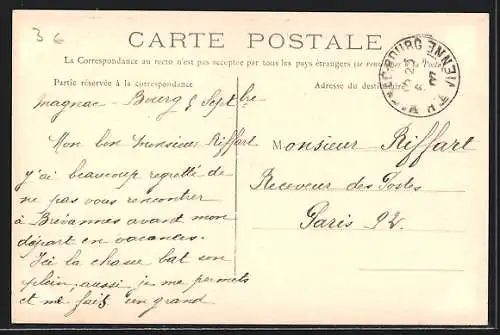 36
CARTE POSTALE
La Correspondance au recto n'est pas acceptée par tous les pays étrangers (se renseigner à la Poste)
Partie réservée à la correspondance
Adresse du destinataire
Magnac-Bourg 5 Septbre
Mon bon Monsieur Riffart
j'ai beaucoup regretté de
ne pas vous rencontrer
à Brévannes avant mon
départ en vacances.
Ici la chasse bat son
plein, aussi je me permets
et me fais un grand
Monsieur Riffart
Receveur des Postes
Paris 92.
BOURG
VIENNE